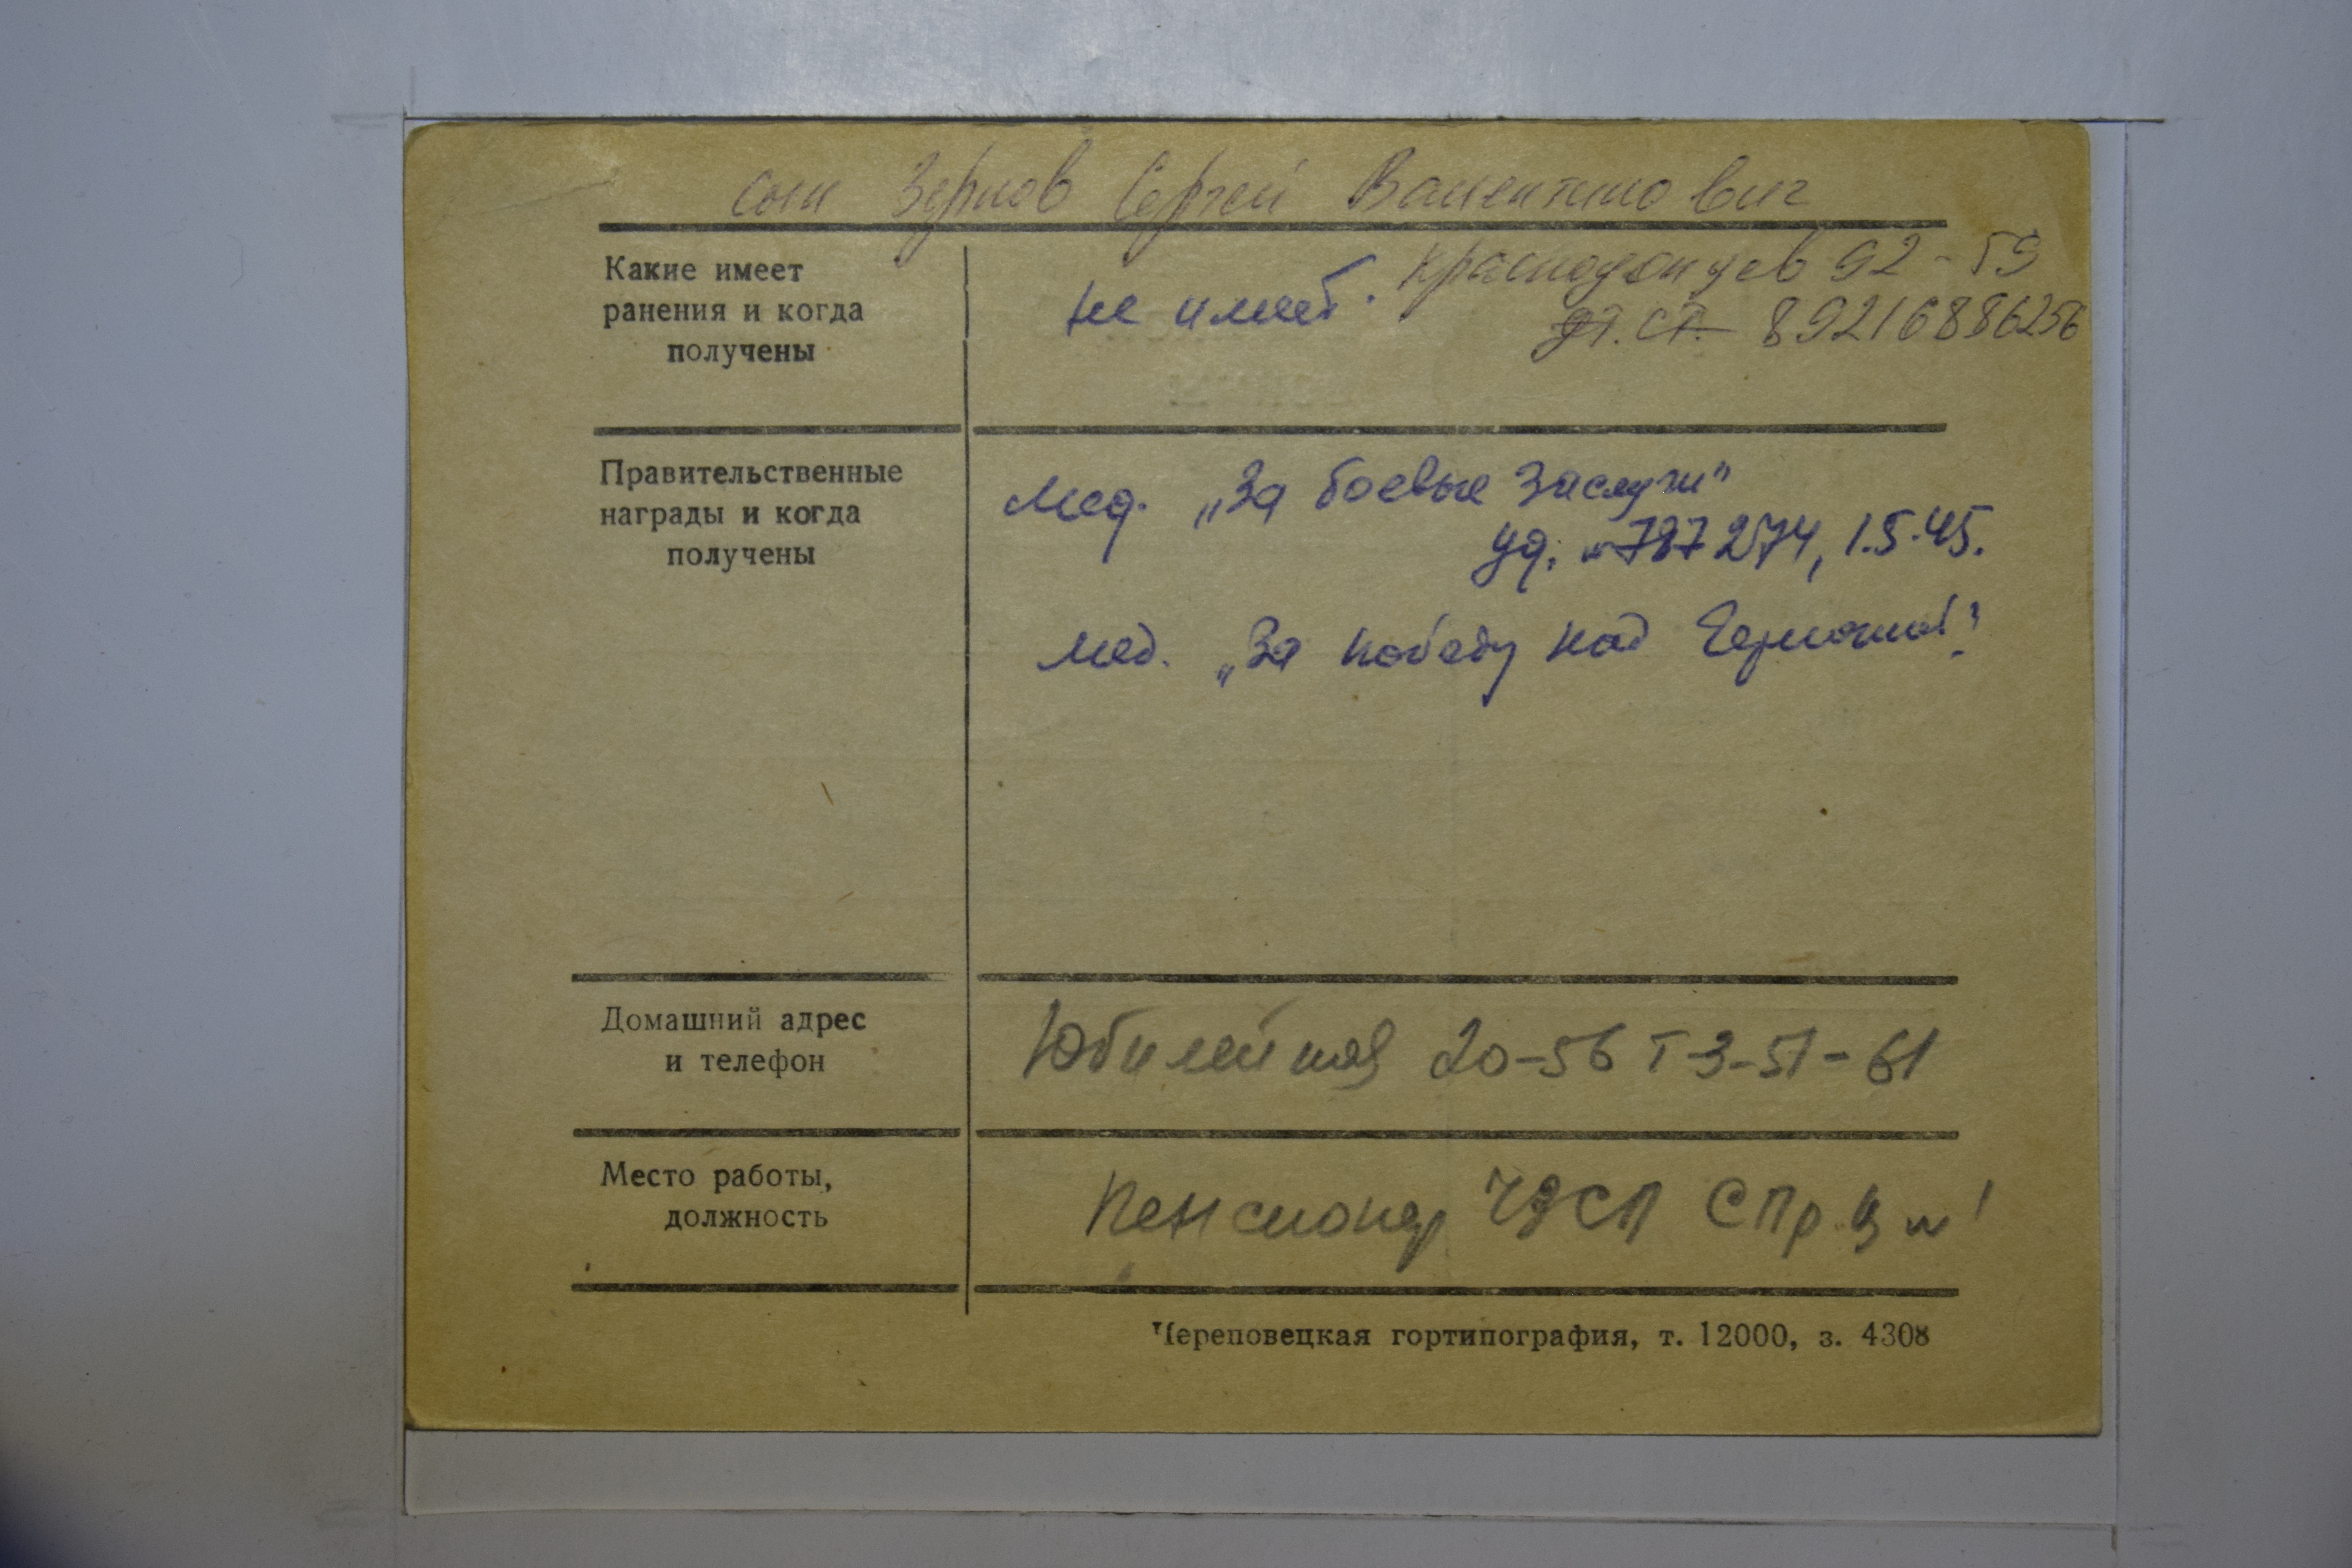 сын Зернов Сергей Валентинович
Какие имеет
ранения и когда
получены
не имеет.
Краснодонцев 92-59
89216886256
Правительственные
награды и когда
получены
Мед. „За боевые заслуги"
уд. № 787274, 1.5.45.
Мед. „За победу над Германией"
Домашний адрес
и телефон
Юбилейная 20-56 т 3-51-61
Место работы,
должность
Пенсионер ЧФСП
Череповецкая гортипография, т. 12000, з. 4308